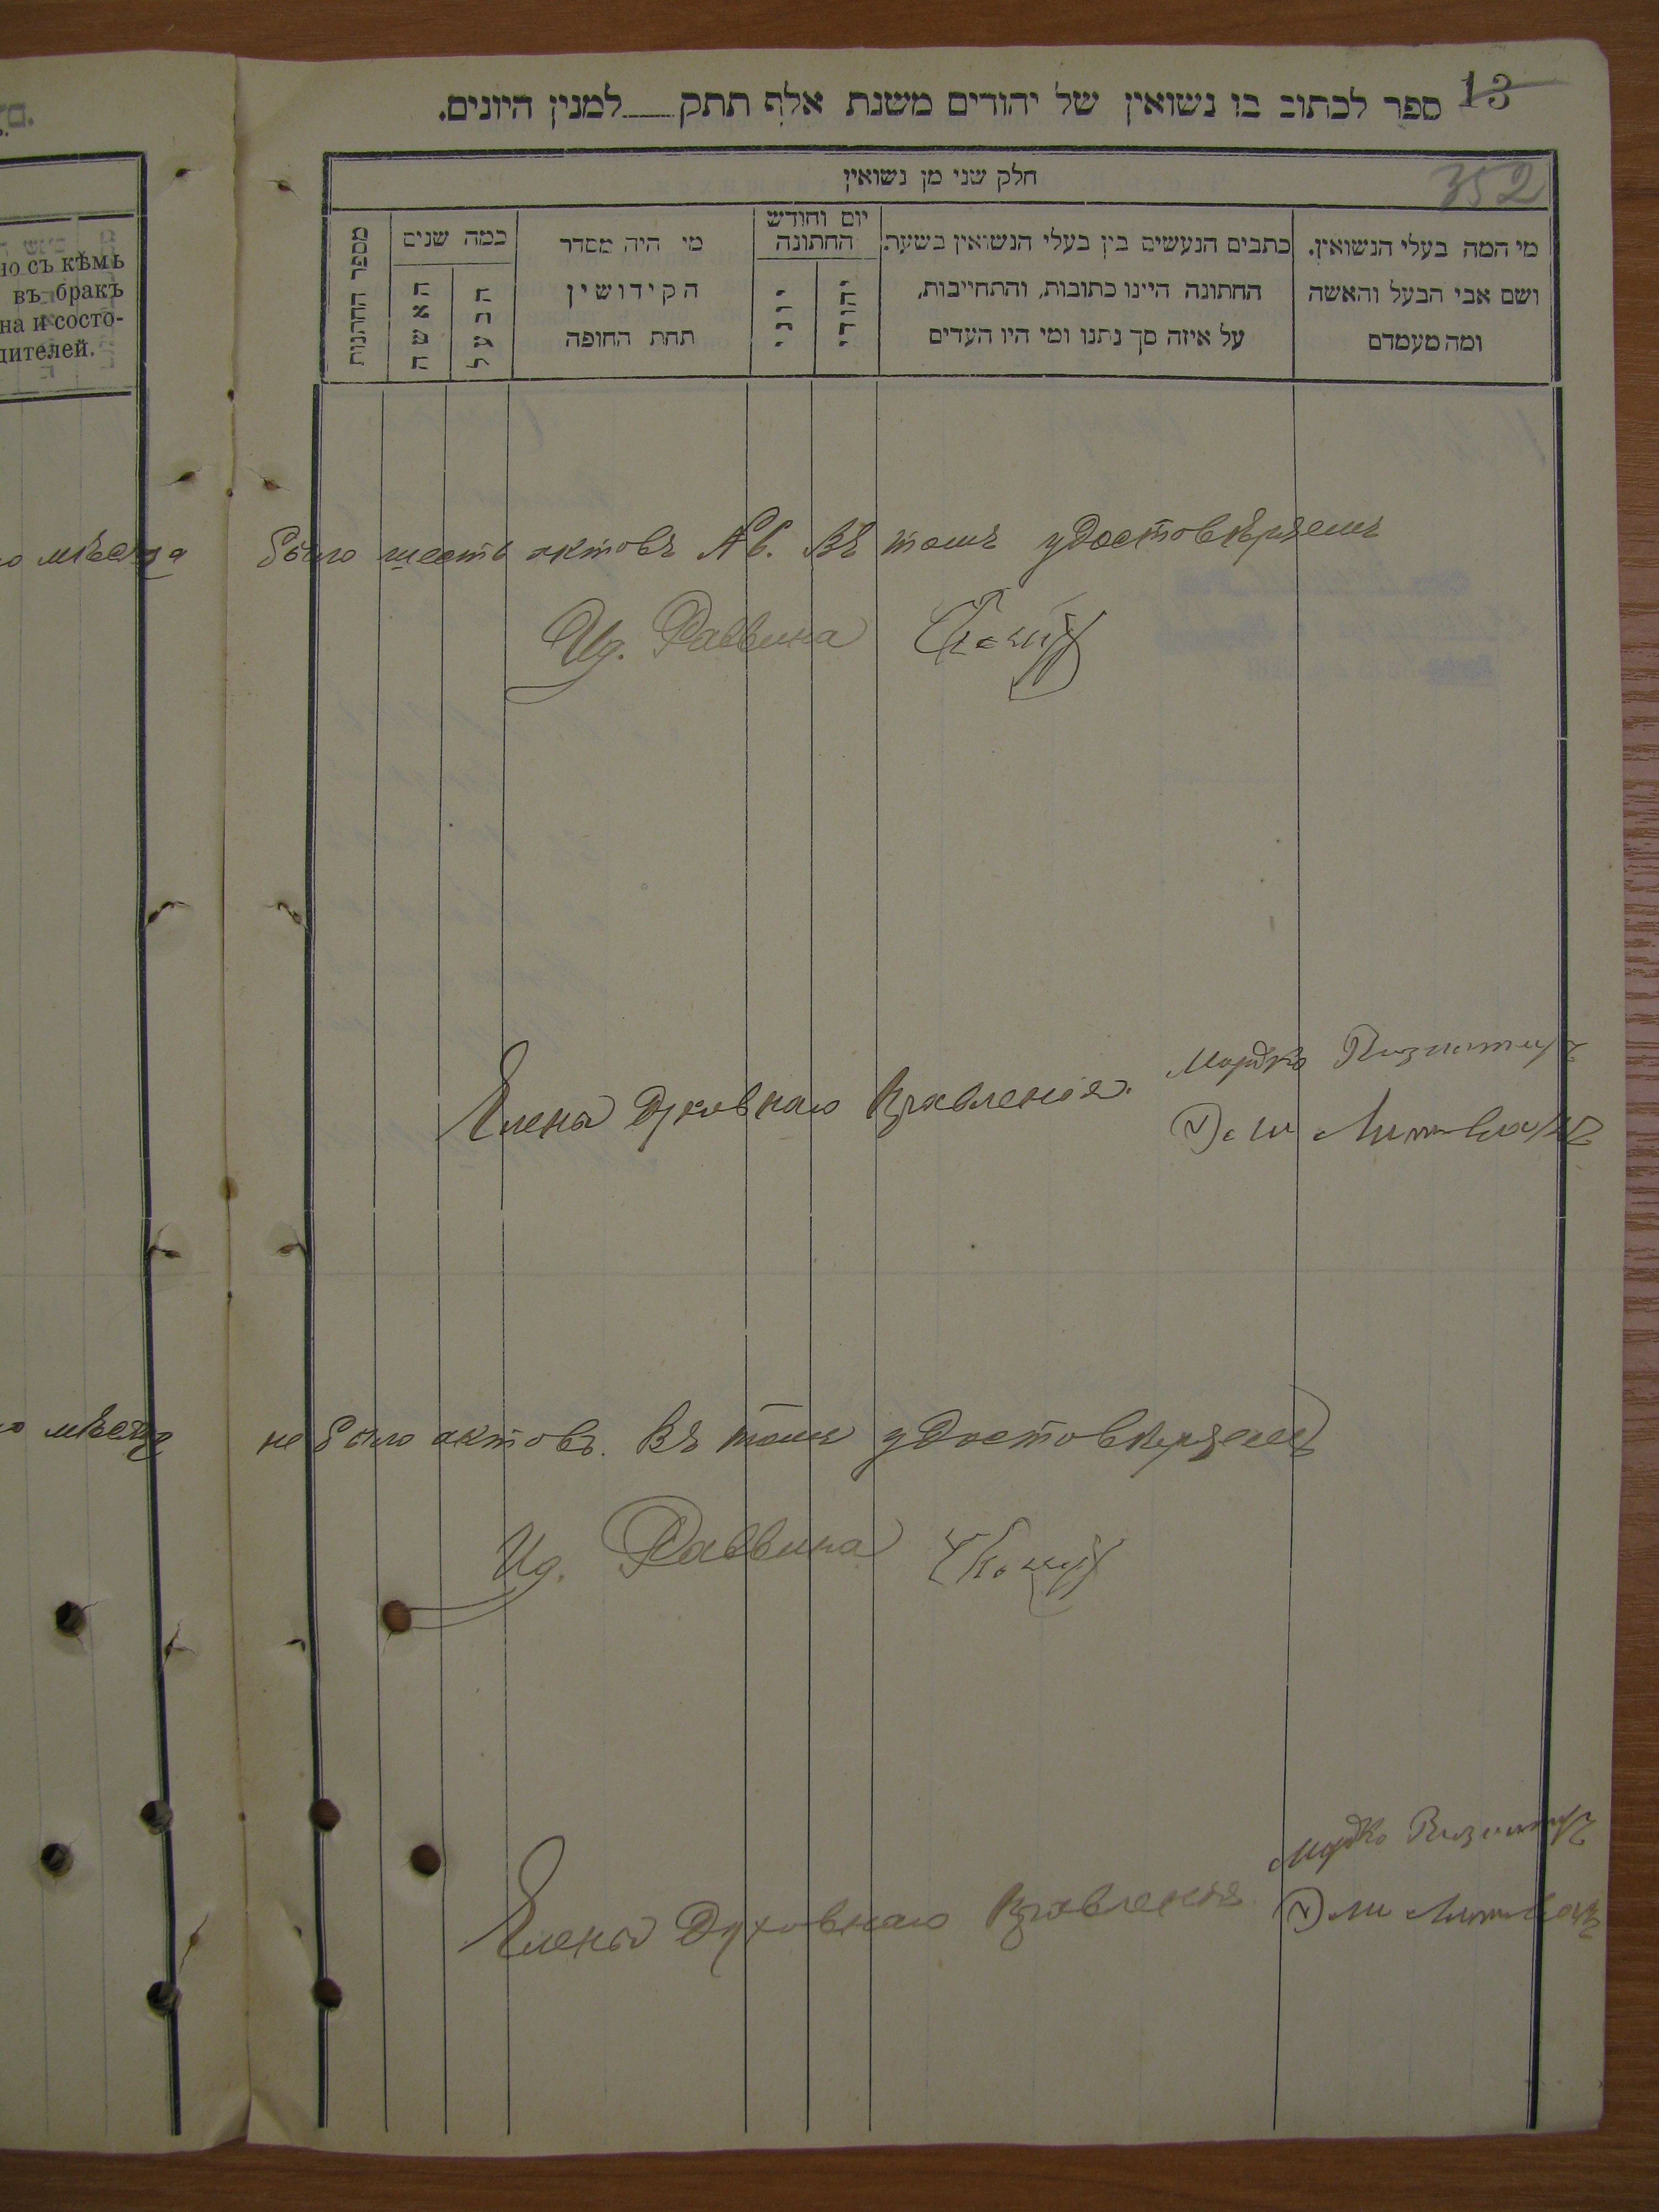 13
ספר לכתוב בו נשואין של יהודים משנת אלף תתק למנין היונים.
352
חלק שני מן נשואין
מי המה בעלי הנשואין.
ושם אבי הבעל והאשה
ומה מעמדם
כתבים הנעשים בין בעלי הנשואין בשעת
החתונה היינו כתובות, והתחייבות,
על איזה סך נתנו ומי היו העדים
יום וחודש
החתונה
יהודי
יוני
מי היה מסדר
הקידושין
תחת החופה
כמה שנים
הבעל
האשה
מספר החתונות
но съ кѣмъ
въ бракъ
на и состо-
дителей.
о мѣсяца было шесть актовъ №6. Въ томъ удостовѣряемъ
Ид. Раввина
Члены Духовнаго Правленія.
Мордко
о мѣсяца не было актовъ. Въ томъ удостовѣряемъ
Ид. Раввина
Мордко
Члены Духовнаго Правленія